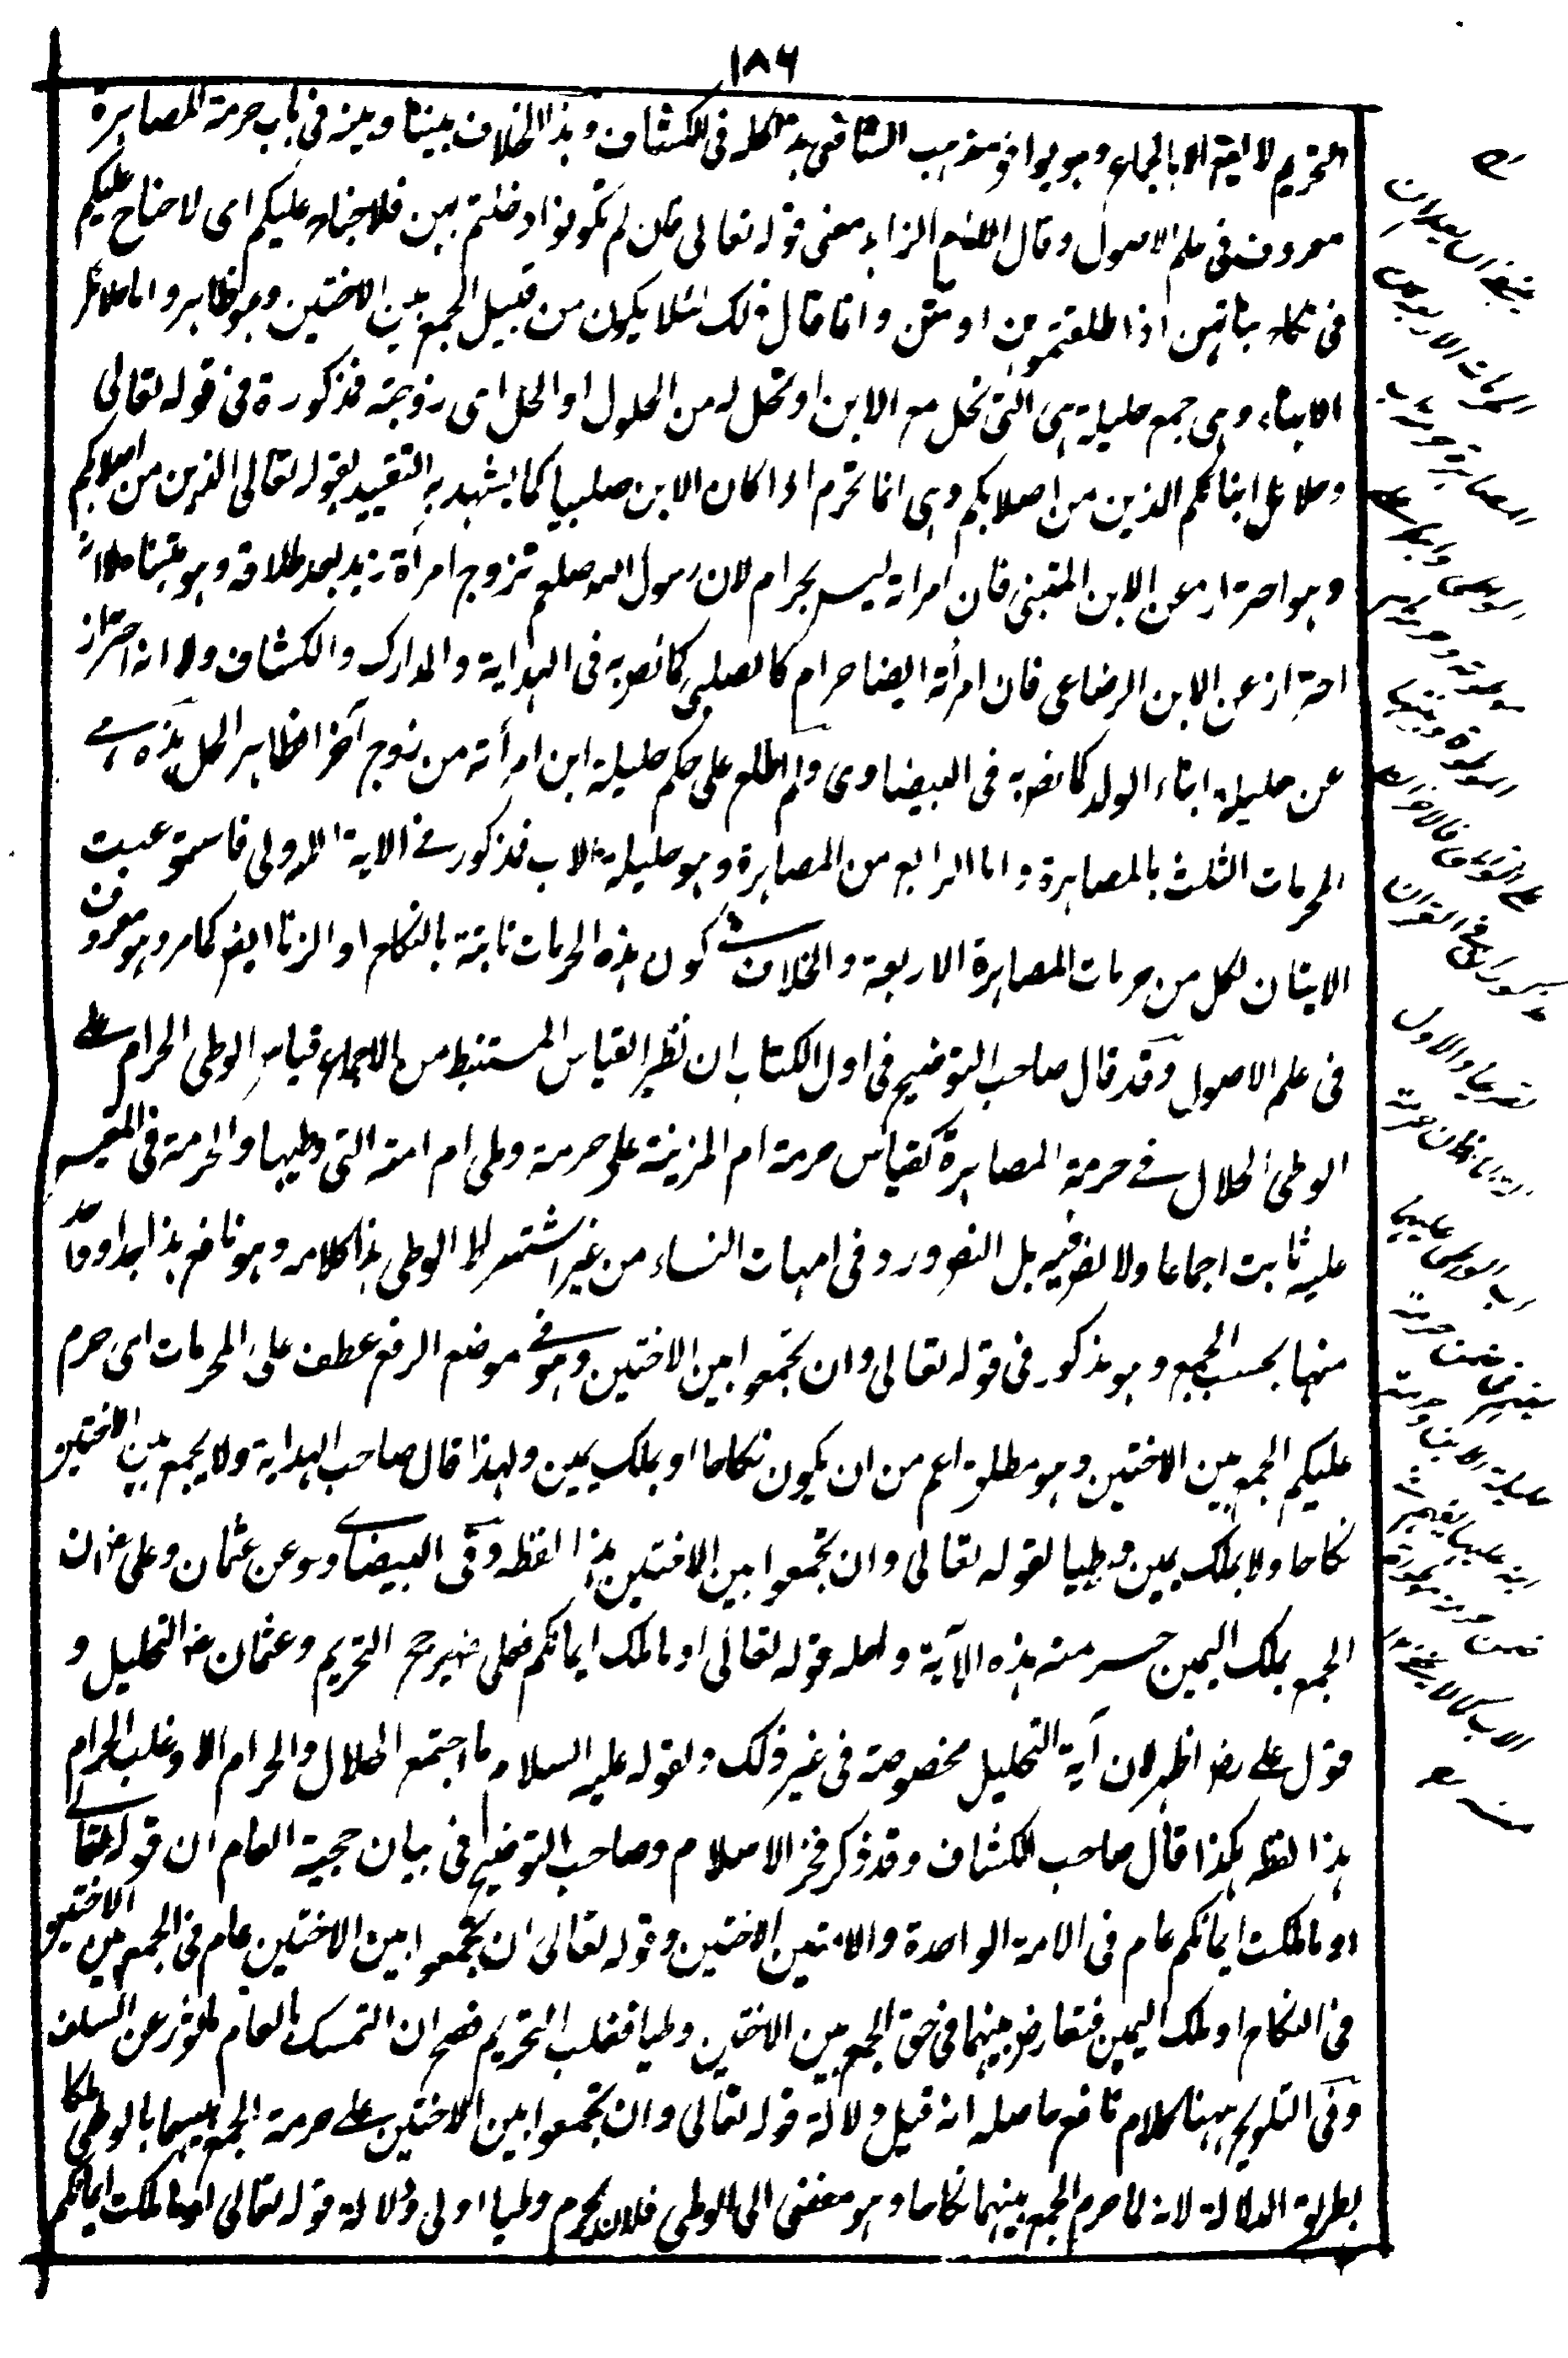 ١٨٦
التحريم لا يقع الا بالجماع وهو يوافق مذهب الشافعى هذا كله فى الكشاف وهذا الخلاف بيننا وبينه فى باب حرمة المصاهرة
معروف فى علم الاصول وقال الامام الزاهد معنى قوله تعالى فان لم تكونوا دخلتم بهن فلا جناح عليكم اى لا جناح عليكم
فى نكاح بناتهن اذا طلقتموهن او متن وانما قال ذلك لئلا يكون من قبيل الجمع بين الاختين وهو ظاهر واما حلائل
الابناء وهى جمع حليلة هى التى تحل مع الابن او تحل له من الحلول او الحل اى زوجته فمذكورة فى قوله تعالى
وحلائل ابنائكم الذين من اصلابكم وهى انما تحرم اذا كان الابن صلبيا كما يشهد به التقييد بقوله تعالى الذين من اصلابكم
وهو احتراز عن الابن المتبنى فان امرأته ليس بحرام لان رسول الله صلعم تزوج امرأة زيد بعد طلاقه وهو متبناه لا انه
احتراز عن الابن الرضاعى فان امرأته ايضا حرام كالصلبى كما نص به فى الهداية والمدارك والكشاف ولا انه احتراز
عن حليلة ابناء الولد كما نص به فى البيضاوى ولم اطلع على حكم حليلة ابن امرأته من زوج آخر الظاهر الحل هذه هى
المحرمات الثلث بالمصاهرة واما الرابع من المصاهرة وهو حليلة الاب فمذكور فى الاية الاولى فاستوعبت
الايتان لكل من حرمات المصاهرة الاربعة والخلاف فى كون هذه الحرمات ثابتة بالنكاح او الزنا ايضا كما مر وهو معروف
فى علم الاصول وقد قال صاحب التوضيح فى اول الكتاب ان نظير القياس المستنبط من الاجماع قياس الوطى الحرام على
الوطى الحلال فى حرمة المصاهرة كقياس حرمة ام المزنية على حرمة وطى ام امته التى وطيها والحرمة فى المقيس
عليه ثابت اجماعا ولا نص فيه بل النص ورد فى امهات النساء من غير اشتراط الوطى هذا كلامه وهو نافع هذا جدا وما حرم
منها بحسب الجمع وهو مذكور فى قوله تعالى وان تجمعوا بين الاختين وهو فى موضع الرفع عطف على المحرمات اى حرم
عليكم الجمع بين الاختين وهو مطلق اعم من ان يكون نكاحا او بملك يمين ولهذا قال صاحب الهداية ولا يجمع بين الاختين
نكاحا ولا بملك يمين وطيا لقوله تعالى وان تجمعوا بين الاختين هذا لفظه وفى البيضاوى وعن عثمان وعلى رض ان
الجمع بملك اليمين حرمته هذه الآية واحله قوله تعالى او ما ملكت ايمانكم فعلى رض يرجح التحريم وعثمان رض التحليل و
قول على رض اظهر لان آية التحليل مخصوصة فى غير ذلك ولقوله عليه السلام ما اجتمع الحلال والحرام الا وغلب الحرام
هذا لفظه هكذا قال صاحب الكشاف وقد ذكر فخر الاسلام وصاحب التوضيح فى بيان حجية العام ان قوله تعالى
او ما ملكت ايمانكم عام فى الامة الواحدة والامتين الاختين وقوله تعالى ان تجمعوا بين الاختين عام فى الجمع بين الاختين
فى النكاح او ملك اليمين فتعارض بينهما فى حق الجمع بين الاختين وطيا فغلب التحريم فصح ان التمسك بالعام ماثور عن السلف
وفى التلويح ههنا كلام نافع حاصله انه قيل دلالة قوله تعالى وان تجمعوا بين الاختين على حرمة الجمع بينهما بالوطى ملكا
بطريق الدلالة لانه لما حرم الجمع بينهما نكاحا وهو مفضى الى الوطى فلان يحرم وطيا اولى ودلالة قوله تعالى او ما ملكت ايمانكم